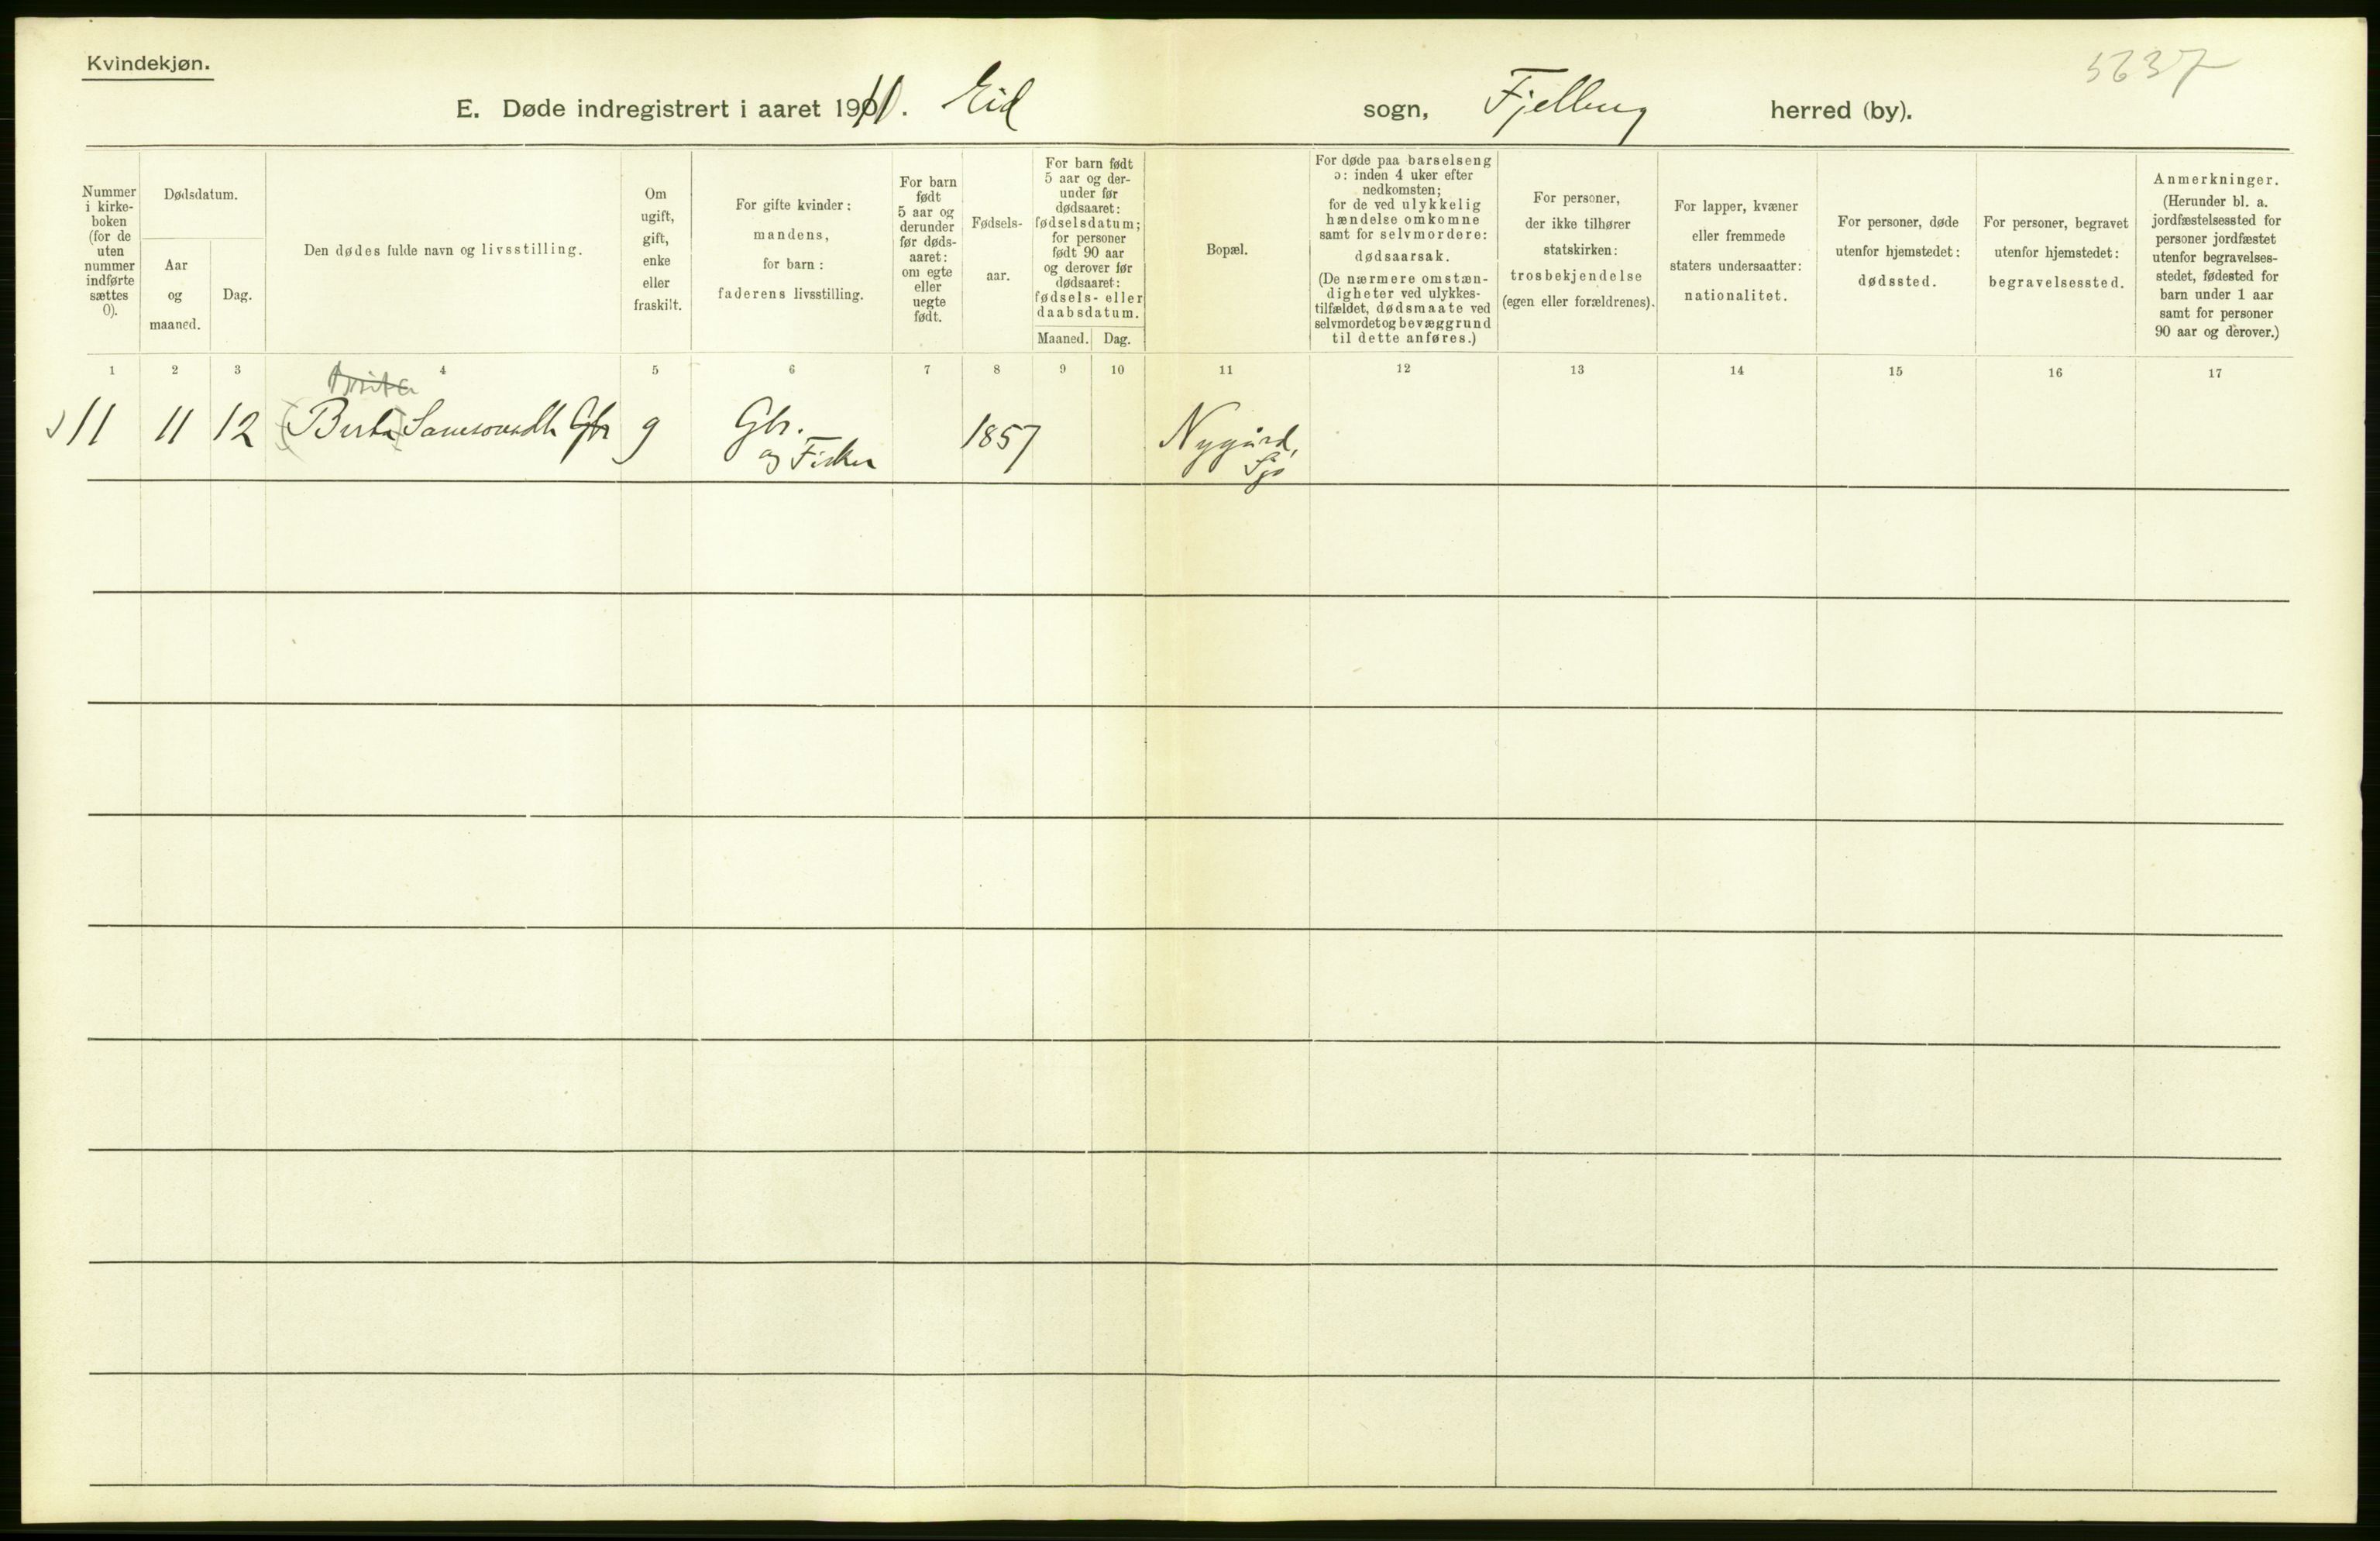 Kvindekjøn.
5637
E. Døde indregistrert i aaret 1911. Eid sogn, Fjelberg herred (by).
Nummer i kirke-boken (for de uten nummer indførte sættes 0).
Dødsdatum.
Aar og maaned.
Dag.
Den dødes fulde navn og livsstilling.
Om ugift, gift, enke eller fraskilt.
For gifte kvinder: mandens, for barn: faderens livsstilling.
For barn født 5 aar og derunder før døds-aaret: om egte eller uegte født.
Fødsels-aar.
For barn født 5 aar og der-under før dødsaaret: fødselsdatum; for personer født 90 aar og derover før dødsaaret: fødsels- eller daabsdatum.
Maaned.
Dag.
Bopæl.
For døde paa barselseng ɔ: inden 4 uker efter nedkomsten; for de ved ulykkelig hændelse omkomne samt for selvmordere: dødsaarsak. (De nærmere omstæn-digheter ved ulykkes-tilfældet, dødsmaate ved selvmordet og bevæggrund til dette anføres.)
For personer, der ikke tilhører statskirken: trosbekjendelse (egen eller forældrenes).
For lapper, kvæner eller fremmede staters undersaatter: nationalitet.
For personer, døde utenfor hjemstedet: dødssted.
For personer, begravet utenfor hjemstedet: begravelsessted.
Anmerkninger. (Herunder bl. a. jordfæstelsessted for personer jordfæstet utenfor begravelses-stedet, fødested for barn under 1 aar samt for personer 90 aar og derover.)
1 2 3 4 5 6 7 8 9 10 11 12 13 14 15 16 17
Brita
11 11 12 (Berta) Samsonsdtr Gbr g Gbr. 1857 Nygård,
og Fisker